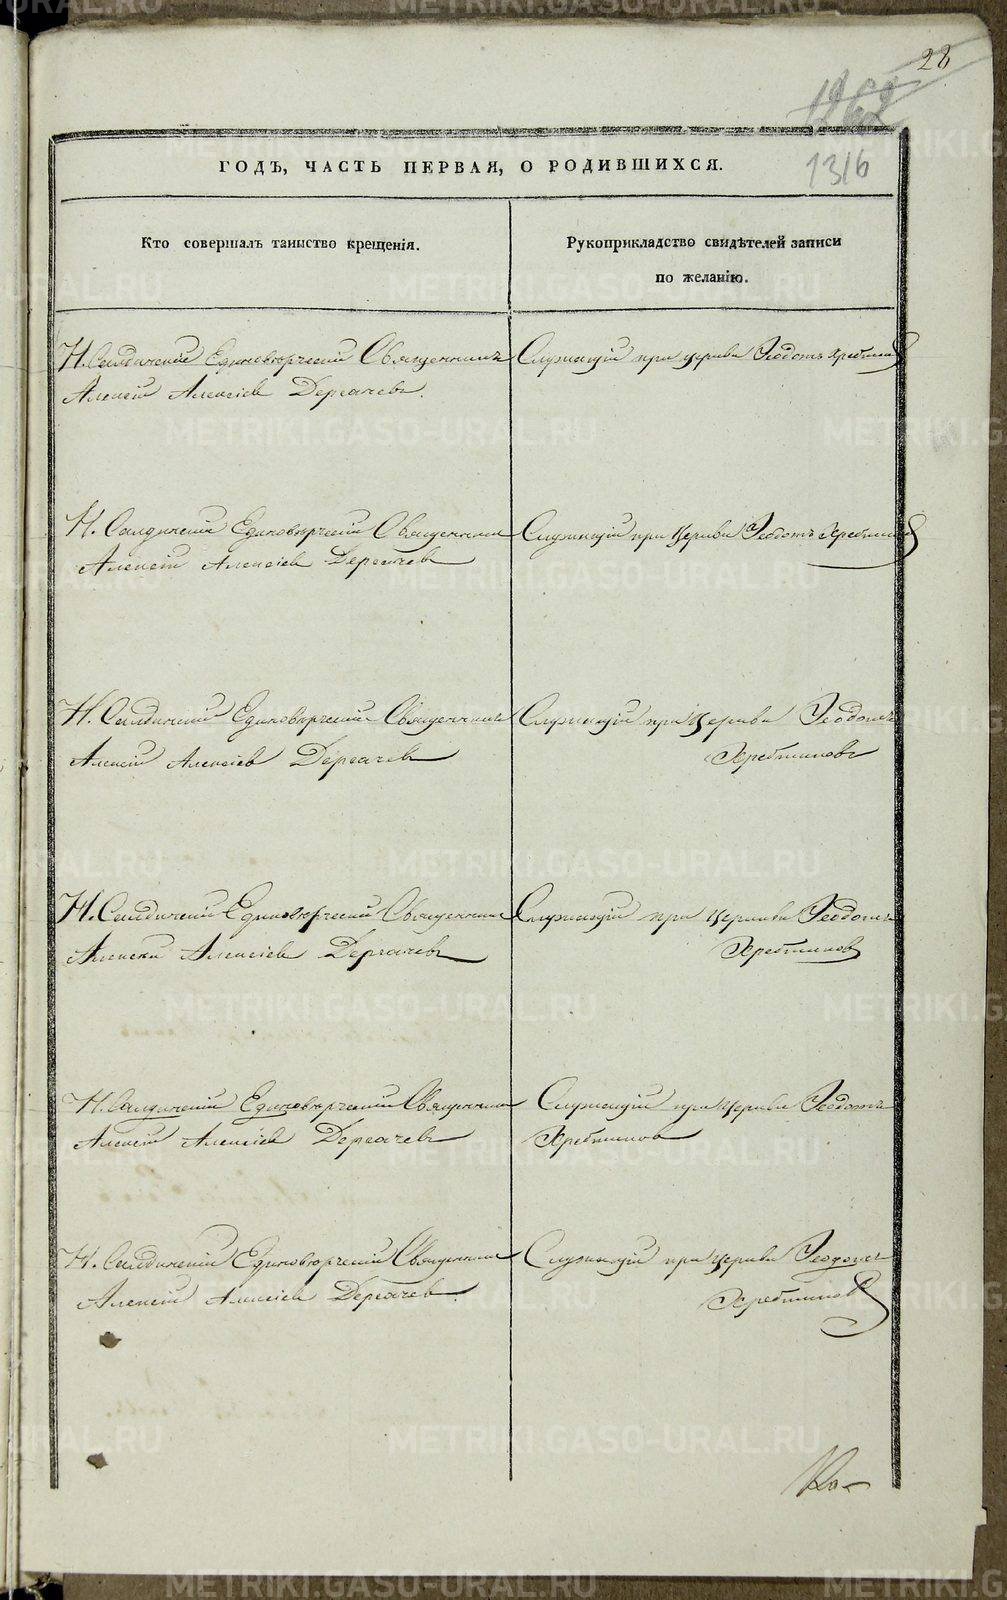 28
1262
1316
ГОДЪ, ЧАСТЬ ПЕРВАЯ, О РОДИВШИХСЯ.
Кто совершалъ таинство крещенія.
Рукоприкладство свидѣтелей записи
по желанію.
Н. Салдинскій Единовѣрческій Священникъ
Алексій Алексіевъ Дергачевъ.
Служащій при церкви Ѳеодотъ Хребтиковъ
Н. Салдинскій Единовѣрческій Священникъ
Алексій Алексіевъ Дергачевъ
Служащій при церкви Ѳеодотъ Хребтиковъ
Н. Салдинскій Единовѣрческій Священникъ
Алексій Алексіевъ Дергачевъ
Служащій при церкви Ѳеодотъ
Хребтиковъ
Н. Салдинскій Единовѣрческій Священникъ
Алексій Алексіевъ Дергачевъ
Служащій при церкви Ѳеодотъ
Хребтиковъ
Н. Салдинскій Единовѣрческій Священникъ
Алексій Алексіевъ Дергачевъ
Служащій при церкви Ѳеодотъ
Хребтиковъ
Н. Салдинскій Единовѣрческій Священникъ
Алексій Алексіевъ Дергачевъ.
Служащій при церкви Ѳеодотъ
Хребтиковъ
METRIKI.GASO-URAL.RU